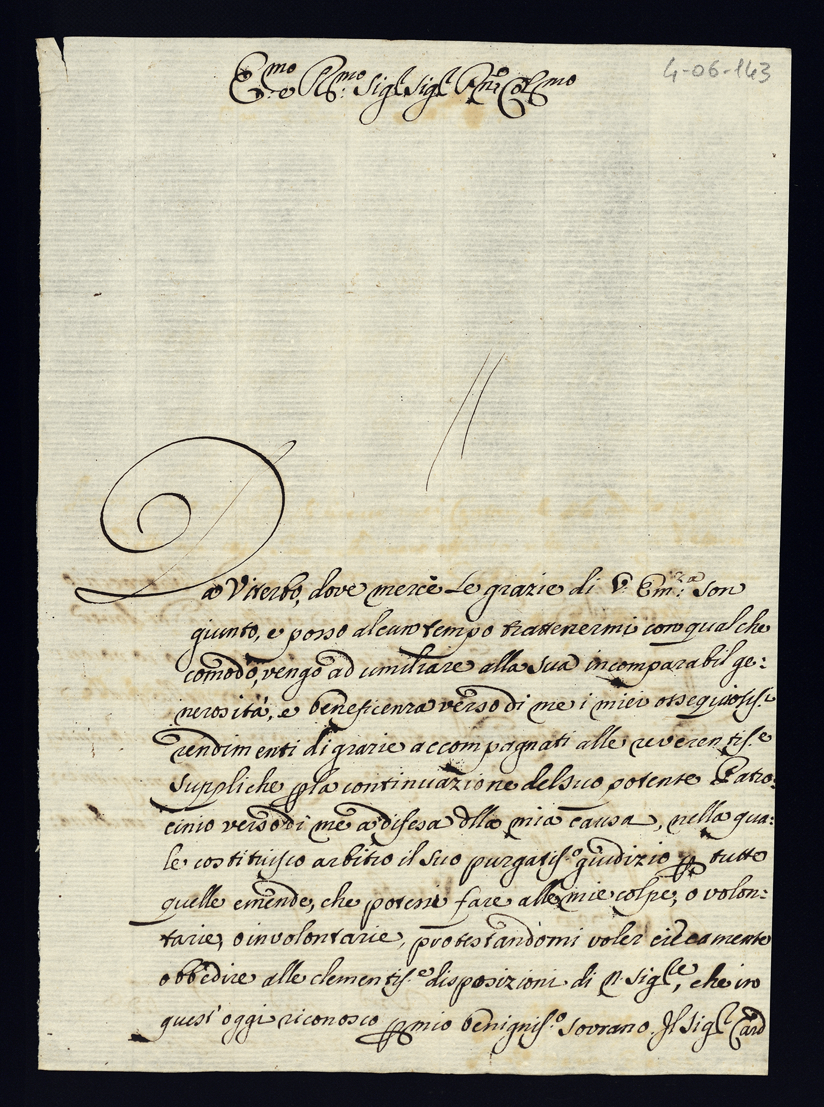 4-06-143
E.mo e R.mo Sig.r Sig.r P̃ne Col.mo
Da Viterbo, dove mercè le grazie di V. Em.za son
giunto, e posso alcun tempo trattenermi con qualche
comodo, vengo ad umiliare alla sua incomparabil ge:
nerosità, e beneficenza verso di me i miei ossequiosis.i
rendimenti di grazie accompagnati alle reverentis.e
suppliche p la continuazione del suo potente Patro:
cinio verso di me a difesa dlla mia causa, nella qua:
le costituisco arbitro il suo purgatis.o giudizio p tutte
quelle emende, che potessi fare alle mie colpe, o volon:
tarie, o involontarie, protestandomi voler ciecamente
obbedire alle clementis.e disposizioni di N. Sig.re, che in
quest'oggi riconosco p mio benignis.o Sovrano. Il Sig.r Card